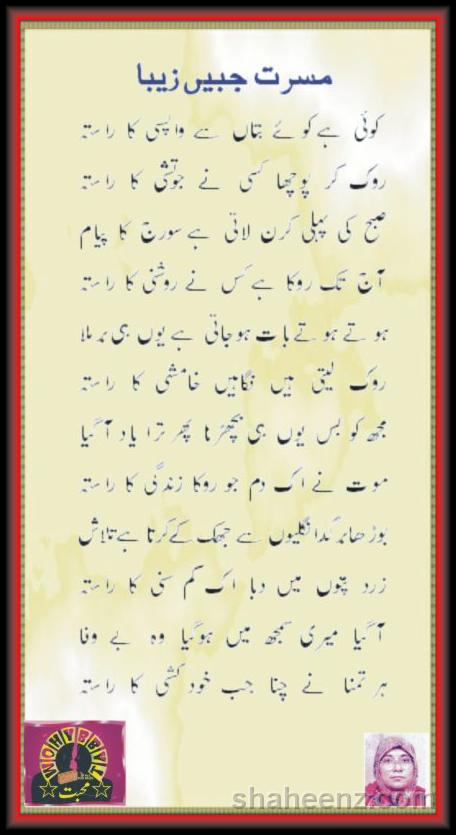 مسرت جبیں زیبا
کوئی ہے کوئے بتاں سے واپسی کا راستہ
روک کر پوچھا کسی نے جوتشی کا راستہ
صبح کی پہلی کرن لاتی ہے سورج کا پیام
آج تک روکا ہے کس نے روشنی کا راستہ
ہوتے ہوتے بات ہوجاتی ہے یوں ہی برملا
روک لیتی ہیں نگاہیں خامشی کا راستہ
مجھ کو بس یوں ہی بچھڑنا پھر ترا یاد آگیا
موت نے اک دم جو روکا زندگی کا راستہ
بوڑھا برگد انگلیوں سے جھک کے کرتا ہے تلاش
زرد پتوں میں دبا اک کم سنی کا راستہ
آگیا میری سمجھ میں ہوگیا وہ بے وفا
ہر تمنا نے چنا جب خودکشی کا راستہ
محبت
shaheenz.com